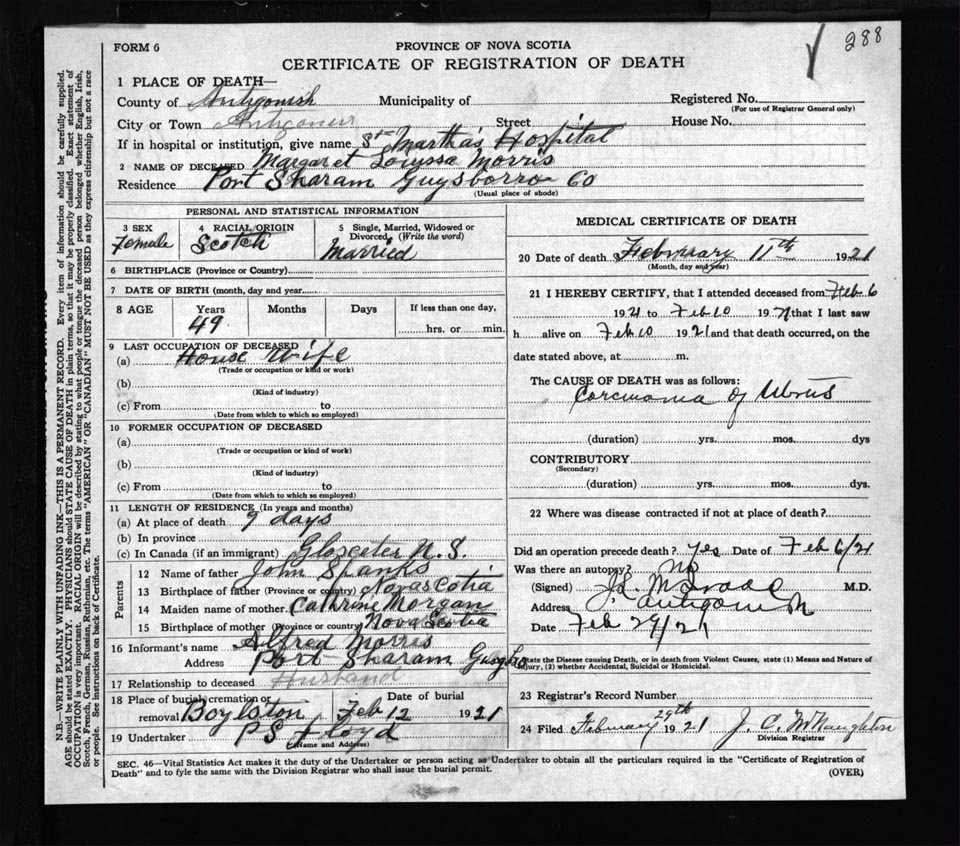 288
FORM 6
PROVINCE OF NOVA SCOTIA
CERTIFICATE OF REGISTRATION OF DEATH
1 PLACE OF DEATH—
County of Antigonish Municipality of Registered No.
(For use of Registrar General only)
City or Town Street House No.
If in hospital or institution, give name St Martha's Hospital
2 NAME OF DECEASED Margaret Morris
Residence Port Sharam Guysborro Co
(Usual place of abode)
PERSONAL AND STATISTICAL INFORMATION
3 SEX Female
4 RACIAL ORIGIN Scotch
5 Single, Married, Widowed or Divorced (Write the word) Married
6 BIRTHPLACE (Province or Country)
7 DATE OF BIRTH (month, day and year)
8 AGE Years 49 Months Days If less than one day, hrs. or min.
9 LAST OCCUPATION OF DECEASED
(a) House Wife
(Trade or occupation or kind or work)
(b)
(Kind of industry)
(c) From to
(Date from which to which so employed)
10 FORMER OCCUPATION OF DECEASED
(a)
(Trade or occupation or kind of work)
(b)
(Kind of industry)
(c) From to
(Date from which to which so employed)
11 LENGTH OF RESIDENCE (In years and months)
(a) At place of death 9 days
(b) In province
(c) In Canada (if an immigrant) Glosceter N.S.
Parents
12 Name of father John Shanks
13 Birthplace of father (Province or country) Nova Scotia
14 Maiden name of mother Cathrine Morgan
15 Birthplace of mother (Province or country) Nova Scotia
16 Informant's name Alfred Morris
Address Port Sharam
17 Relationship to deceased Husband
18 Place of burial, cremation or removal Boylston Date of burial Feb 12 1921
19 Undertaker P S Floyd
(Name and Address)
MEDICAL CERTIFICATE OF DEATH
20 Date of death February 11th 1921
(Month, day and year)
21 I HEREBY CERTIFY, that I attended deceased from Feb 6
1921 to Feb 10 1921 that I last saw
h alive on Feb 10 1921 and that death occurred, on the
date stated above, at m.
The CAUSE OF DEATH was as follows:
Carcinoma of Uterus
(duration) yrs. mos. dys
CONTRIBUTORY
(Secondary)
(duration) yrs. mos. dys.
22 Where was disease contracted if not at place of death?
Did an operation precede death? Yes Date of Feb 6/21
Was there an autopsy? No
(Signed) M.D.
Address Antigonish
Date Feb 29/21
State the Disease causing Death, or in death from Violent Causes, state (1) Means and Nature of
Injury, (2) whether Accidental, Suicidal or Homicidal.
23 Registrar's Record Number
24 Filed February 29th 1921 J. C. McNaughton
Division Registrar
SEC. 46—Vital Statistics Act makes it the duty of the Undertaker or person acting as Undertaker to obtain all the particulars required in the "Certificate of Registration of
Death" and to fyle the same with the Division Registrar who shall issue the burial permit.
(OVER)
N.B.—WRITE PLAINLY WITH UNFADING INK—THIS IS A PERMANENT RECORD. Every item of information should be carefully supplied.
AGE should be stated EXACTLY. PHYSICIANS should STATE CAUSE OF DEATH in plain terms, so that it may be properly classified. Exact statement of
OCCUPATION is very important. RACIAL ORIGIN will be described by stating to what people or tongue the deceased person belonged whether English, Irish,
Scotch, French, German, Russian, Ruthenian, etc. The terms "AMERICAN" OR "CANADIAN" MUST NOT BE USED as they express citizenship but not a race
or people. See instructions on back of Certificate.